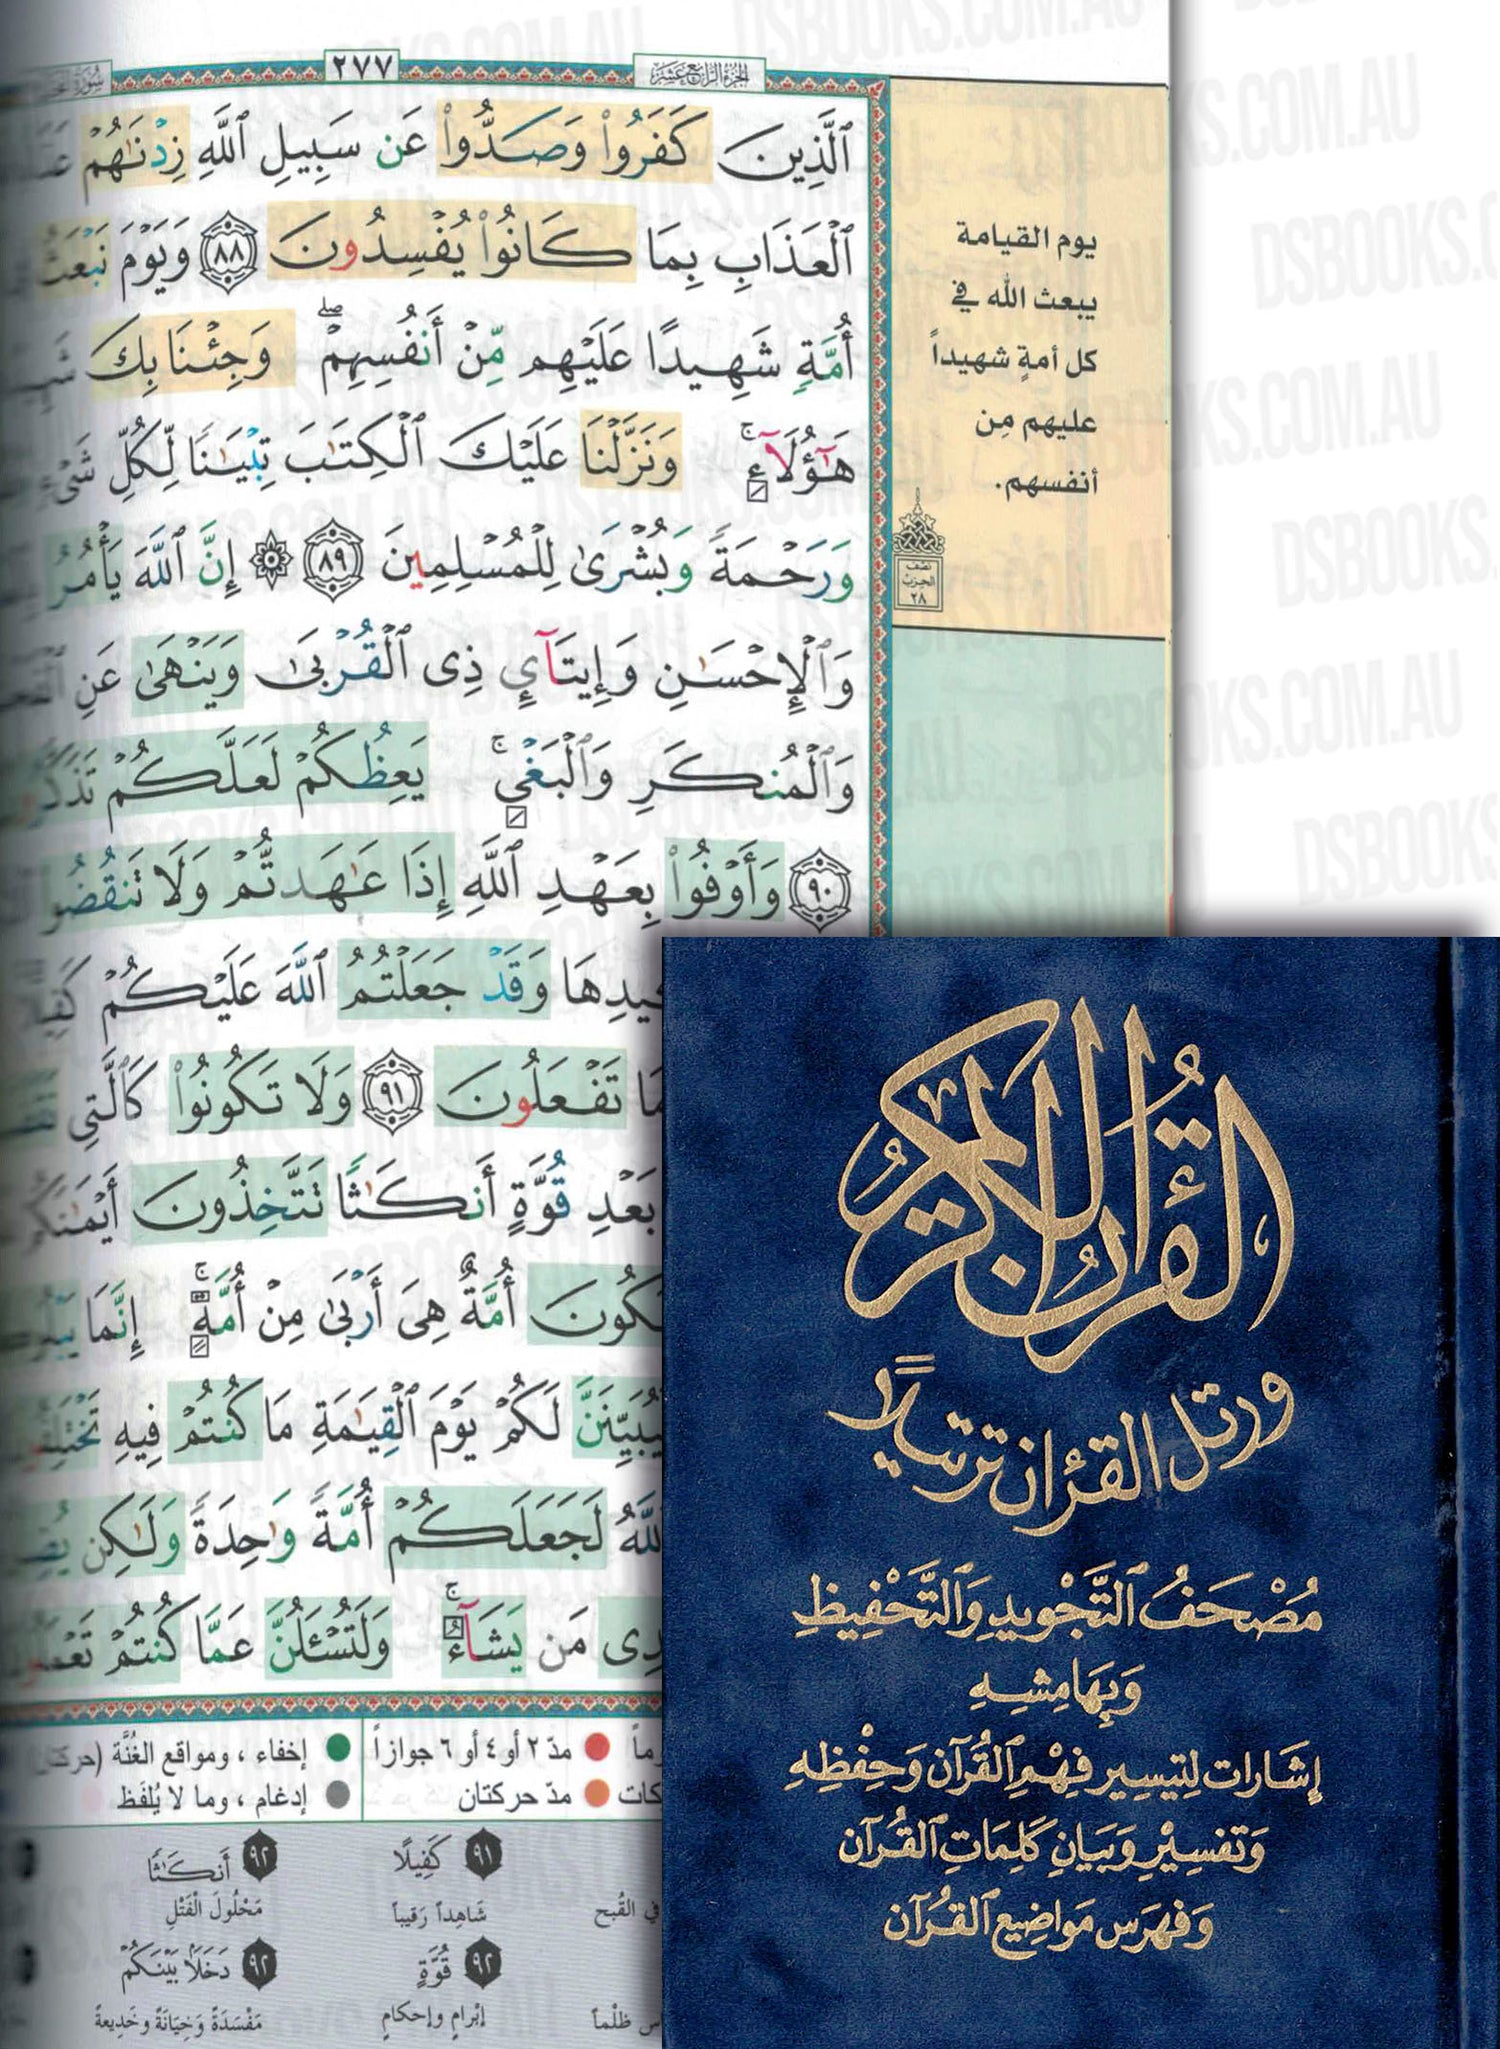 الجزء الرابع عشر
٢٧٧
سورة النحل
ٱلَّذِينَ كَفَرُوا۟ وَصَدُّوا۟ عَن سَبِيلِ ٱللَّهِ زِدْنَٰهُمْ
ٱلْعَذَابِ بِمَا كَانُوا۟ يُفْسِدُونَ ٨٨ وَيَوْمَ نَبْعَثُ
أُمَّةٍ شَهِيدًا عَلَيْهِم مِّنْ أَنفُسِهِمْ ۖ وَجِئْنَا بِكَ
هَٰٓؤُلَآءِ ۚ وَنَزَّلْنَا عَلَيْكَ ٱلْكِتَٰبَ تِبْيَٰنًا لِّكُلِّ شَىْءٍ
وَرَحْمَةً وَبُشْرَىٰ لِلْمُسْلِمِينَ ٨٩ ۞ إِنَّ ٱللَّهَ يَأْمُرُ
وَٱلْإِحْسَٰنِ وَإِيتَآئِ ذِى ٱلْقُرْبَىٰ وَيَنْهَىٰ عَنِ
وَٱلْمُنكَرِ وَٱلْبَغْىِ ۚ يَعِظُكُمْ لَعَلَّكُمْ تَذَكَّرُونَ
٩٠ وَأَوْفُوا۟ بِعَهْدِ ٱللَّهِ إِذَا عَٰهَدتُّمْ وَلَا تَنقُضُوا۟
وَقَدْ جَعَلْتُمُ ٱللَّهَ عَلَيْكُمْ كَفِيلًا
تَفْعَلُونَ ٩١ وَلَا تَكُونُوا۟ كَٱلَّتِى
بَعْدِ قُوَّةٍ أَنكَٰثًا تَتَّخِذُونَ أَيْمَٰنَكُمْ
أُمَّةٌ هِىَ أَرْبَىٰ مِنْ أُمَّةٍ ۚ إِنَّمَا
لَكُمْ يَوْمَ ٱلْقِيَٰمَةِ مَا كُنتُمْ فِيهِ تَخْتَلِفُونَ
لَجَعَلَكُمْ أُمَّةً وَٰحِدَةً وَلَٰكِن
مَن يَشَآءُ ۚ وَلَتُسْـَٔلُنَّ عَمَّا كُنتُمْ تَعْمَلُونَ
يوم القيامة
يبعث الله في
كل أمةٍ شهيداً
عليهم مِن
أنفسهم.
نصف
الحزب
٢٨
مدّ ٢ أو ٤ أو ٦ جوازاً
إخفاء ، ومواقع الغُنَّة
مدّ حركتان
إدغام ، وما لا يُلفَظ
٩١ كَفِيلًا
شَاهِداً رَقِيباً
٩٢ أَنكَٰثًا
مَحْلُولَ الْفَتْلِ
٩٢ قُوَّةٍ
إبْرامٍ وإحكامٍ
٩٢ دَخَلًۢا بَيْنَكُمْ
مَفْسَدَةً وَخِيَانَةً وخَدِيعةً
القرآن الكريم
ورتل القرءان ترتيلاً
مُصْحَفُ ٱلتَّجْوِيدِ وَٱلتَّحْفِيظِ
وَبِهَامِشِهِ
إِشَارات لِتَيسِيرِ فَهْمِ ٱلْقُرآنِ وَحِفْظِهِ
وَتفسِيْرِ وَبَيانِ كَلِمَاتِ ٱلْقُرآن
وَفهرَس مَواضِيعِ ٱلْقُرآن
DSBOOKS.COM.AU